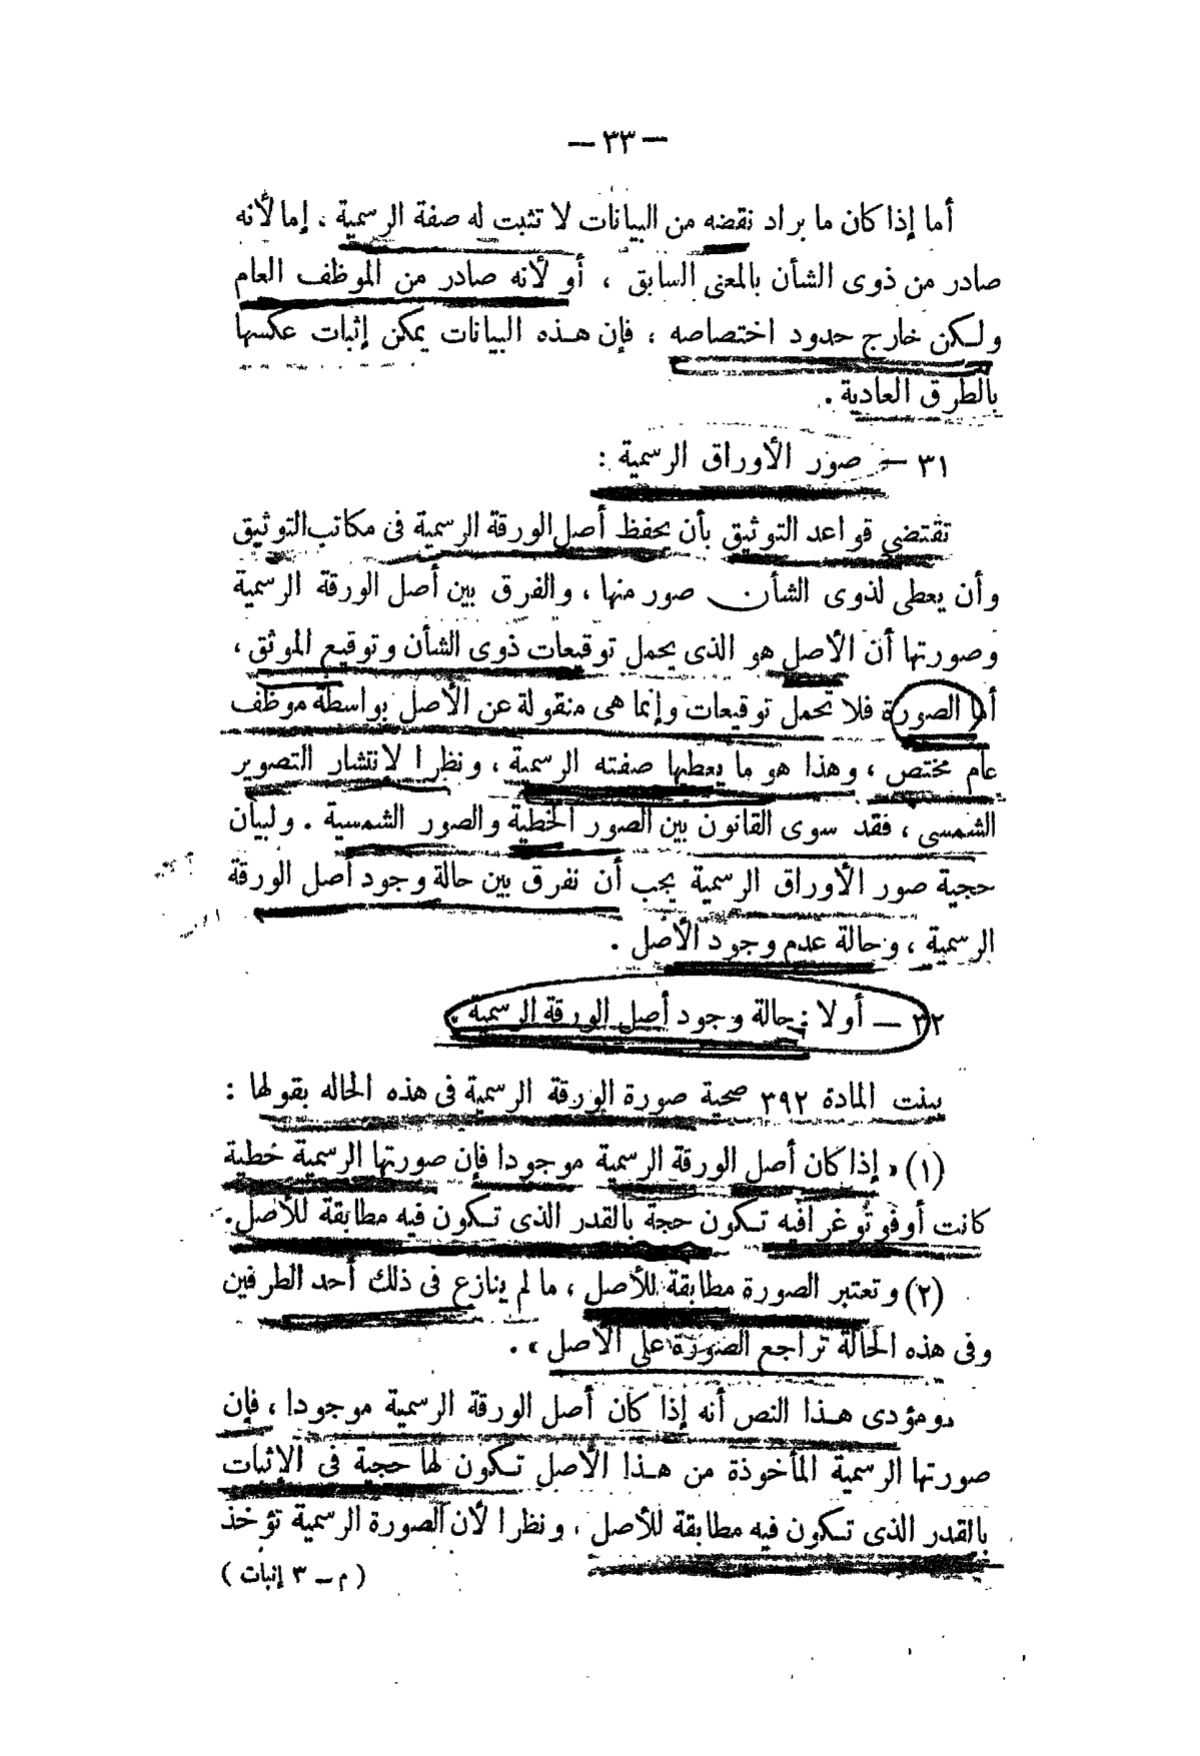 — ٣٣ —
أما إذا كان ما يراد نقضه من البيانات لا تثبت له صفة الرسمية ، إما لأنه
صادر من ذوى الشأن بالمعنى السابق ، أو لأنه صادر من الموظف العام
ولكن خارج حدود اختصاصه ، فإن هذه البيانات يمكن إثبات عكسها
بالطرق العادية .
٣١ — صور الأوراق الرسمية :
تقتضى قواعد التوثيق بأن يحفظ أصل الورقة الرسمية فى مكاتب التوثيق
وأن يعطى لذوى الشأن صور منها ، والفرق بين أصل الورقة الرسمية
وصورتها أن الأصل هو الذى يحمل توقيعات ذوى الشأن وتوقيع الموثق ،
أما الصورة فلا تحمل توقيعات وإنما هى منقولة عن الأصل بواسطة موظف
عام مختص ، وهذا هو ما يعطيها صفته الرسمية ، ونظرا لانتشار التصوير
الشمسى ، فقد سوى القانون بين الصور الخطية والصور الشمسية . ولبيان
حجية صور الأوراق الرسمية يجب أن نفرق بين حالة وجود أصل الورقة
الرسمية ، وحالة عدم وجود الأصل .
٣٢ — أولا : حالة وجود أصل الورقة الرسمية .
بينت المادة ٣٩٢ صحية صورة الورقة الرسمية فى هذه الحاله بقولها :
(١) « إذا كان أصل الورقة الرسمية موجودا فإن صورتها الرسمية خطية
كانت أو فوتوغرافيه تكون حجة بالقدر الذى تكون فيه مطابقة للأصل .
(٢) وتعتبر الصورة مطابقة للأصل ، ما لم ينازع فى ذلك أحد الطرفين
وفى هذه الحالة تراجع الصورة على الأصل » .
ومؤدى هذا النص أنه إذا كان أصل الورقة الرسمية موجودا ، فإن
صورتها الرسمية المأخوذة من هذا الأصل تكون لها حجية فى الإثبات
بالقدر الذى تكون فيه مطابقة للأصل ، ونظرا لأن الصورة الرسمية تؤخذ
( م — ٣ إثبات )